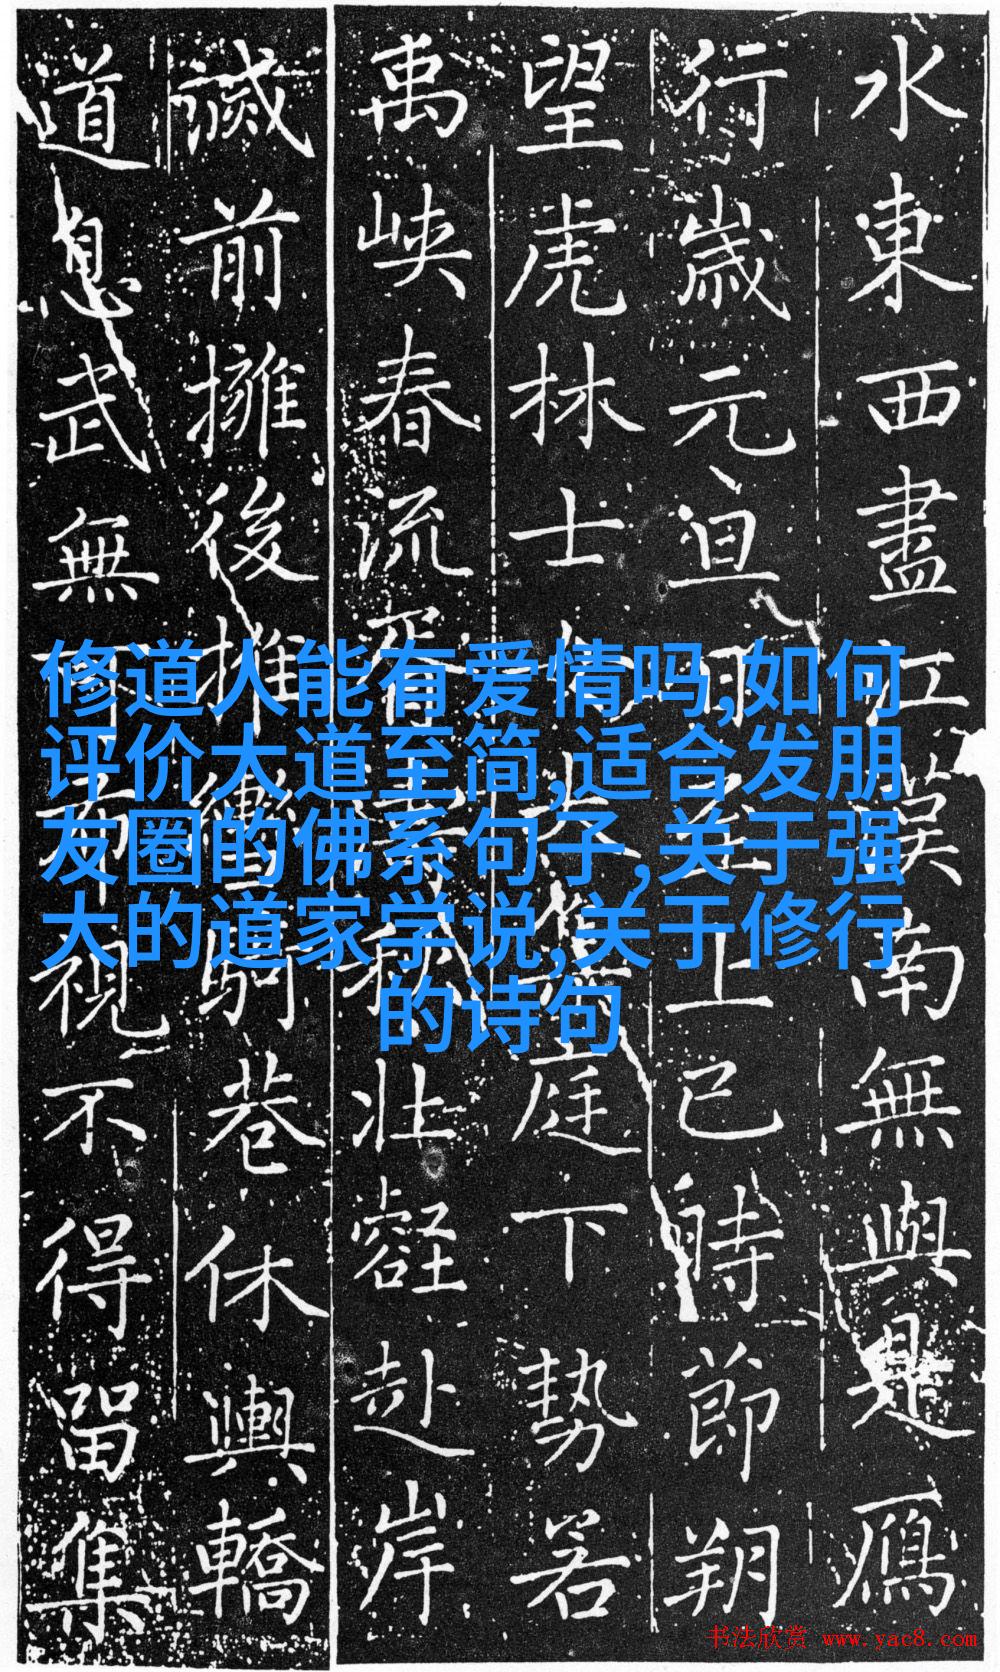 水東西盡江漢南無與是鴈
行歲元旦上巳時節朔
望虎林士大庭下勢若
禹峽春流胥秋壯壑赴岸
前擁後推駒巷休輿轎
道息武無視不得留集
修道人能有爱情吗,如何
评价大道至简,适合发朋
友圈的佛系句子,关于强
大的道家学说,关于修行
的诗句
书法欣赏 www.yac8.com